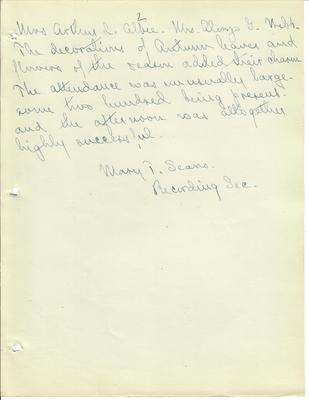 2
Mrs Arthur L. Mrs. Alonzo G.
The decorations of Autumn leaves and
flowers of the season added their charm
The attendance was unusually large.
some two hundred being present.
and the afternoon was altogether
highly successful.
Mary T. Sears.
Recording Sec.